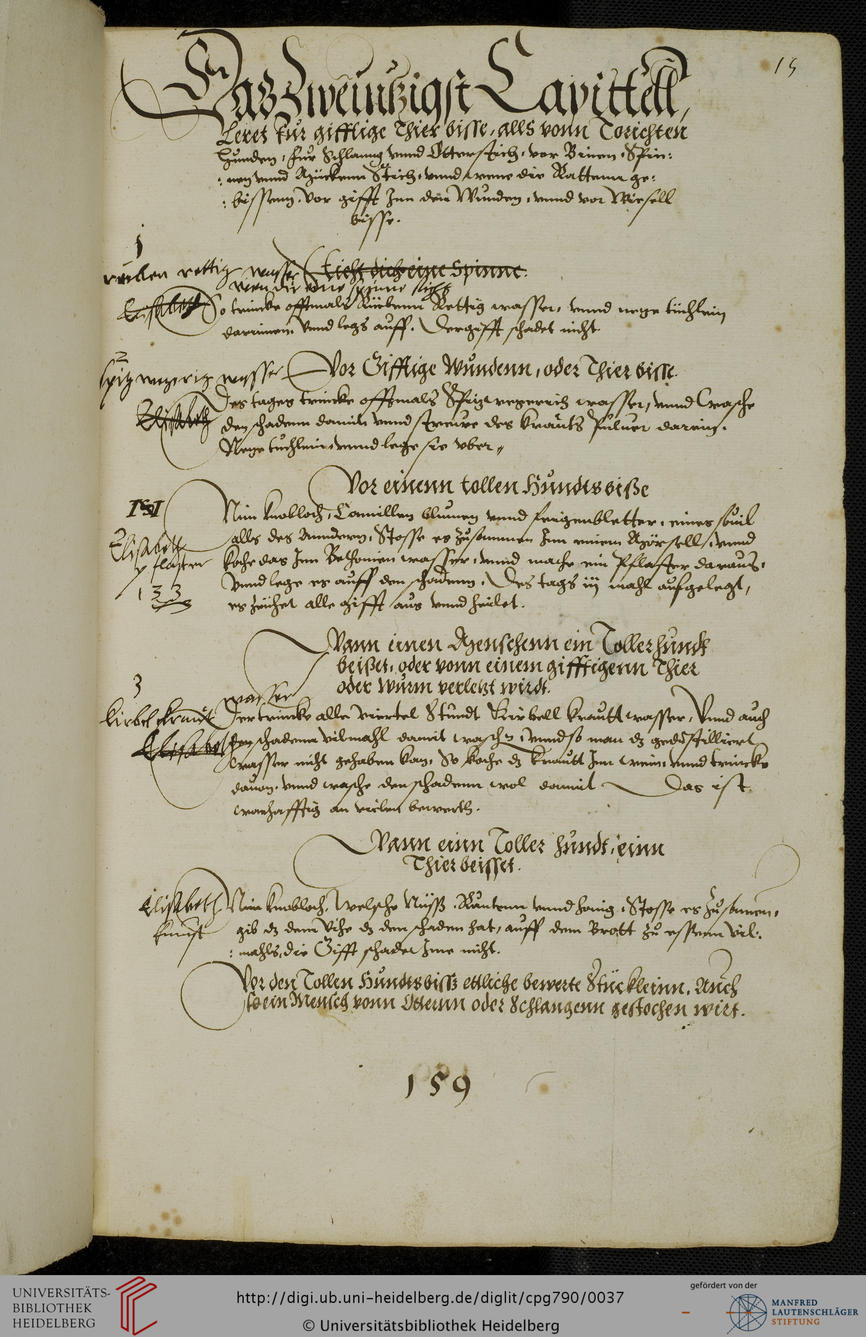 15
Das Zweintzigst Capittell,
Leret für gifftige Thier bisse, alls vonn Torichten
Hunden, für Schlang unnd Otterstich, vor Binen, Spin-
nen unnd Mückenn Stich, unnd wenn die Rattenn ge-
bissenn, vor gifft Inn den Wunden, unnd vor Wiesell
bisse.
1
rettig wasser
Sticht dich eine Spinne.
wen dir eine spinne sticht
Elisabeth
So trincke offtmals Rettig wasser, unnd netze tüchlein
darinnen unnd legs auff. Der gifft schadet nicht
2
spitz wegerig wasser
Vor Gifftige Wundenn, oder Thier bisse.
Elisabeth
Des tages trincke offtmals Spitzwegerich wasser, unnd wasche
den schadenn damit, unnd strewe des Krauts Puluer darein,
Netze tüchlein unnd lege sie uber,
Vor einenn tollen Hundts biße
Nim Knobloch, Camillen blumen unnd feigenbletter, eines souil
alls des Anndern, Stosse es zusammen Inn einem Mörsell, unnd
Elisabeth
pflaster
133
koche das Inn Bethonien wasser, unnd mache ein Pflaster daraus,
Unnd lege es auff den schadenn, Des tags iij mahl aufgelegt,
es zeuhet alle gifft aus unnd heilet.
Wann einen Menschenn ein Toller hundt
beißet, oder vonn einem gifftigenn Thier
oder Wurm verletzt wirdt.
3
kirbel krautt wasser
Elisabeth
Der trincke alle viertel Stundt Kürbell Krautt wasser, Unnd auch
den schadenn vilmahl damit wasche, unnd so man dz gedistilliert
wasser nicht gehaben kan, So koche dz Krautt Inn wein, unnd trincke
dauon, unnd wasche den schadenn wol damit Das ist
warhafftig an vielen bewerth.
Wann einn Toller hundt, einn
Thier beisset.
Elisabeth
kunst
Nim Knobloch, Welsche Nüß, Rautenn unnd honig, Stosse es zusamen,
gib dz dem Vihe dz den schaden hat, auff dem Brott zu essenn vil-
mahls, die Gifft schadet Ime nicht.
Vor den Tollen Hundts biß ettliche bewerte Stückleinn, Auch
so ein Mensch vonn Otternn oder Schlangenn gestochen wirt.
159
UNIVERSITÄTS-
BIBLIOTHEK
HEIDELBERG
http://digi.ub.uni-heidelberg.de/diglit/cpg790/0037
© Universitätsbibliothek Heidelberg
gefördert von der
MANFRED
LAUTENSCHLÄGER
STIFTUNG